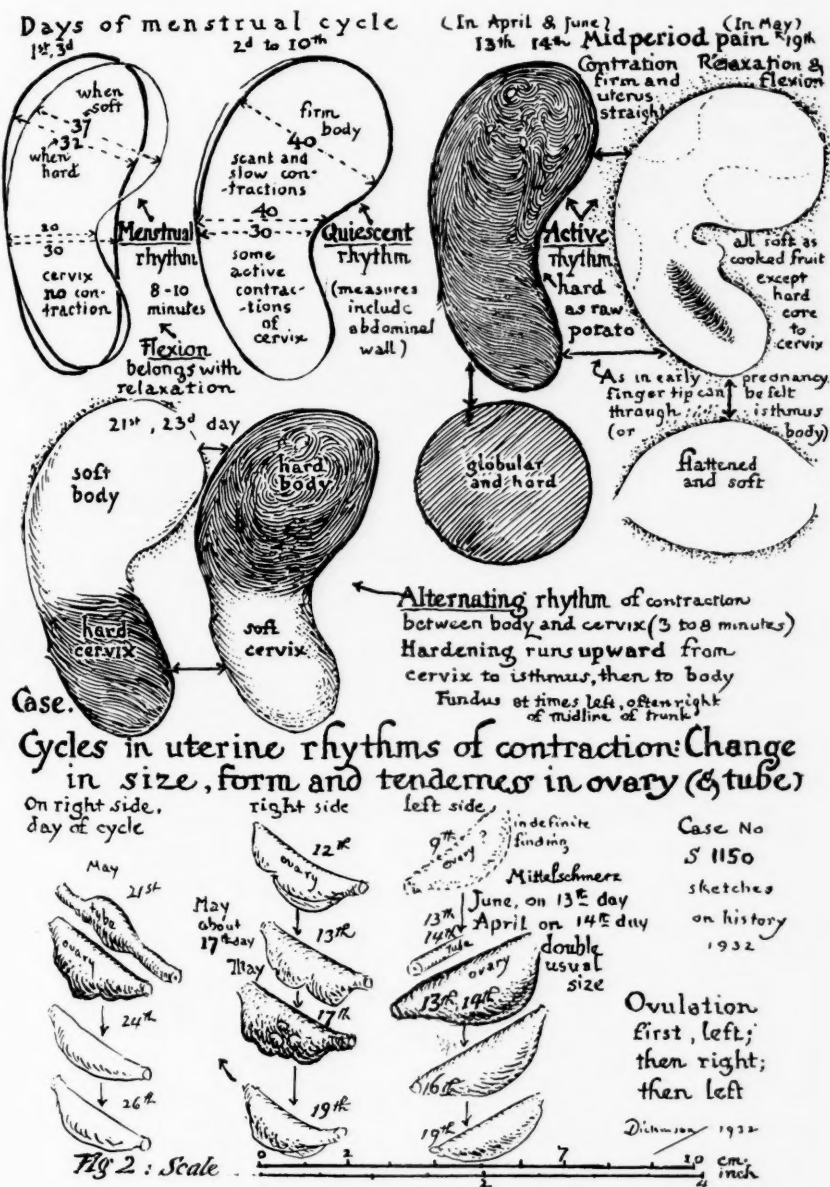 Days of menstrual cycle
1st, 3d
2d to 10th
(In April & June)
13th 14th
Midperiod pain
(In May)
19th
when soft
37
32
when hard
20
30
cervix
no con-
traction
Menstrual
rhythm
8-10
minutes
Flexion
belongs with
relaxation
firm
body
40
scant and
slow con-
tractions
40
30
some
active
contrac-
tions
of
cervix
Quiescent
rhythm
(measures
include
abdominal
wall)
Contration
firm and
uterus
straight
Relaxation &
flexion
Active
rhythm
hard
as raw
potato
all soft as
cooked fruit
except
hard
core
to
cervix
As in early pregnancy
finger tip can be felt
through isthmus
(or body)
globular
and hard
flattened
and soft
21st, 23d day
soft
body
hard
body
hard
cervix
soft
cervix
Alternating rhythm of contraction
between body and cervix (3 to 8 minutes)
Hardening runs upward from
cervix to isthmus, then to body
Fundus at times left, often right
of midline of trunk
Case.
Cycles in uterine rhythms of contraction: Change
in size, form and tenderness in ovary (& tube)
On right side,
day of cycle
May
21st
tube
ovary
24th
26th
right side
12th
ovary
13th
May
about
17th day
May
17th
19th
left side
9th ?
ovary
indefinite
finding
Mittelschmerz
June, on 13th day
April on 14th day
13th
14th
Tube
ovary
double
usual
size
13th 14th
16th
19th
Case No
S 1150
sketches
on history
1932
Ovulation
first, left;
then right;
then left
Dickinson 1932
Fig 2: Scale
0 2 7 10 cm.
inch
2 4